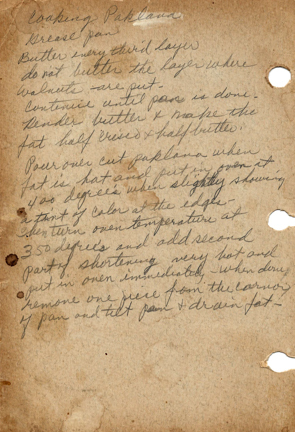 Cooking Paklana
Grease pan
Butter every third layer
do not butter the layer where
walnuts are put.
continue until pan is done.
Render butter & make the
fat half crisco & half butter.
Pour over cut paklana when
fat is hot and put in oven at
400 degrees when slightly showing
a tant of color at the edges
then turn oven temperature at
350 degrees and add second
part of shortening very hot and
put in oven immediately - when done,
remove one piece from the cornor
of pan and tilt pan & drain fat -